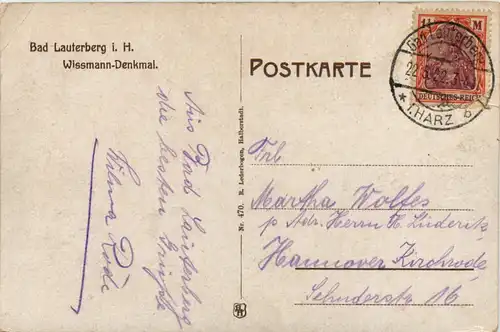 Bad Lauterberg i. H.
Wissmann-Denkmal.
Aus Bad Lauterberg
die besten Grüße
Wilma
POSTKARTE
Nr. 470. R. Lederbogen, Halberstadt.
1¼ M
DEUTSCHES REICH
Bad Lauterberg
22
* i. HARZ b
Frl
Martha Wolfes
p Adr. Herrn H. Lüderitz
Hannover Kirchrode
Sehnderstr 16